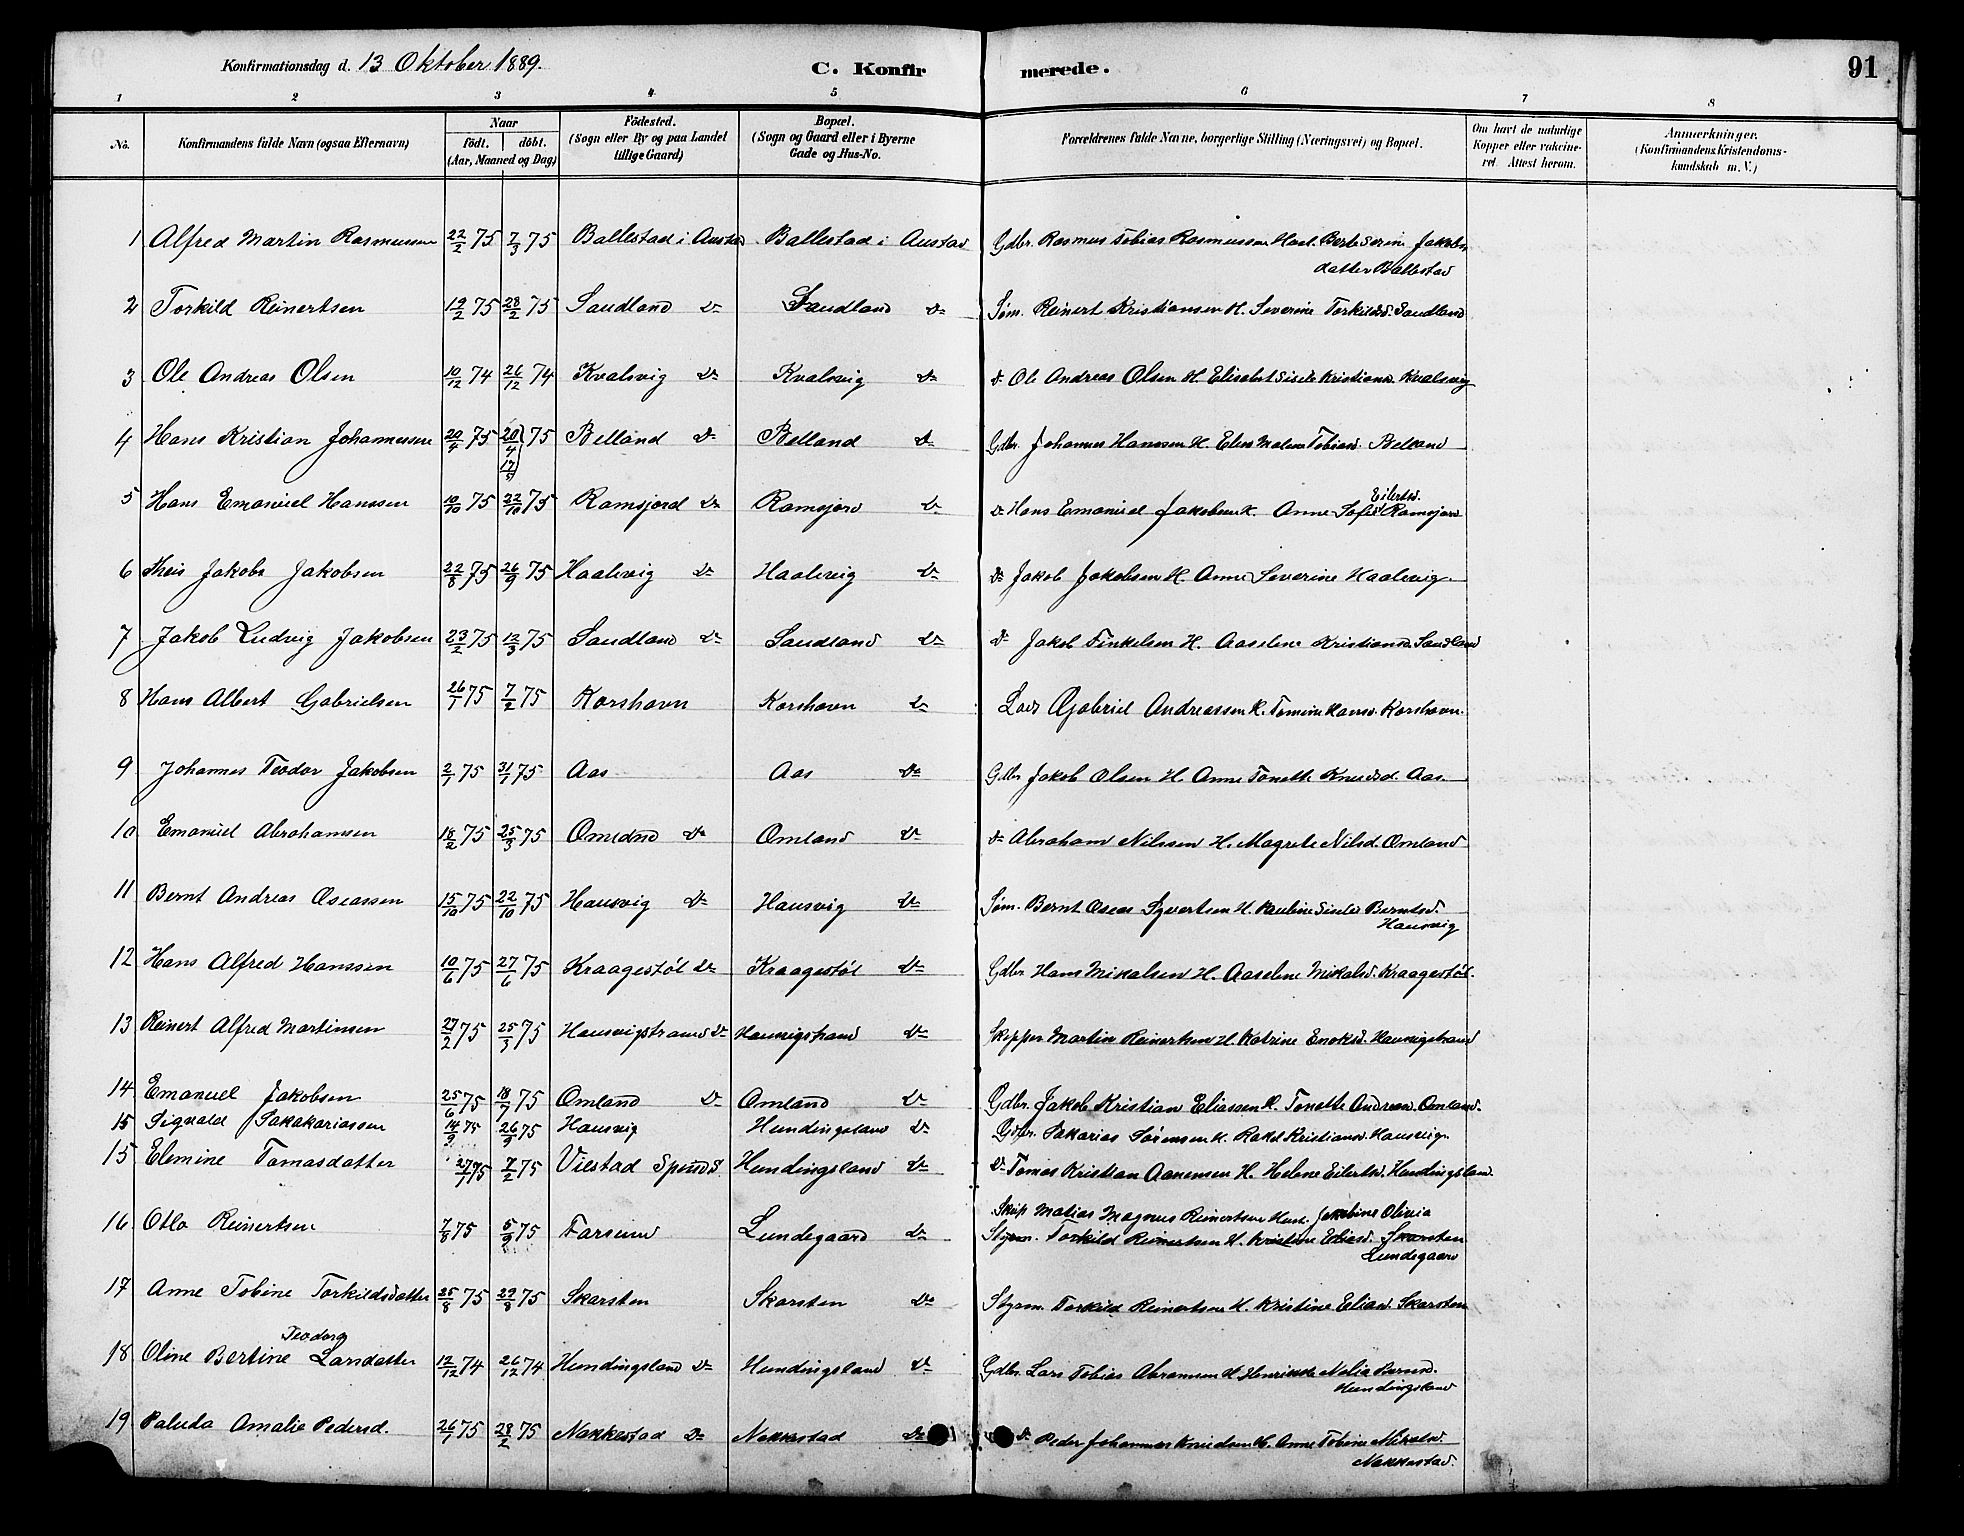 Konfirmationsdag d. 13 Oktober 1889.
C. Konfirmerede.
91
1 2 3 4 5 6 7 8
No.
Konfirmandens fulde Navn (ogsaa Efternavn)
Naar
födt. döbt.
(Aar, Maaned og Dag)
Födested.
(Sogn eller By og paa Landet
tillige Gaard)
Bopæl.
(Sogn og Gaard eller i Byerne
Gade og Hus-No.
Forældrenes fulde Navne, borgerlige Stilling (Næringsvei) og Bopæl.
Om havt de naturlige
Kopper eller vakcine-
ret. Attest herom.
Anmærkninger.
(Konfirmandens Kristendoms-
kundskab m. V.)
1 Alfred Martin Rasmussen 22/2 75 7/3 75 Ballestad i Austad Ballestad i Austad Gdbr. Rasmus Tobias Rasmussen Hust. Berte Serine Jakobs
datter Ballestad
2 Torkild Reinertsen 12/2 75 28/2 75 Saudland D= Saudland D= Søm. Reinert Kristiansen H. Severine Torkildsd. Saudland
3 Ole Andreas Olsen 10/12 74 26/12 74 Kvalsvig D= Kvalsvig D= D= Ole Andreas Olsen H. Elisabet Sisele Kristiansd. Kvalsvig
4 Hans Kristian Johannessen 20/4 75 20/4 75 Belland D= Belland D= Gdbr. Johannes Hanssen H. Elen Malene Tobiasd. Belland
17/5
5 Hans Emanuel Hanssen 10/10 75 22/10 75 Ramsjord D= Ramsjord D= D= Hans Emanuel Jakobsen H. Anne Sofie Eilertsd. Ramsjord
6 Theis Jakobs Jakobsen 22/8 75 26/9 75 Haalevig D= Haalevig D= D= Jakob Jakobsen H. Anne Severine Haalevig
7 Jakob Ludvig Jakobsen 23/2 75 12/3 75 Saudland D= Saudland D= D= Jakob Tinkelsen H. Aaselene Kristiansd. Saudland
8 Hans Albert Gabrielsen 26/1 75 7/2 75 Korshavn Korshavn D= Lods Gabriel Andreassen H. Tomine Hansd. Korshavn.
9 Johannes Teodor Jakobsen 2/1 75 31/1 75 Aas Aas D= Gdbr Jakob Olsen H. Anne Tonette Knudsd. Aas.
10 Emanuel Abrahamsen 18/2 75 25/3 75 Omland D= Omland D= D= Abraham Nilssen H. Magrete Nilsd. Omland
11 Bernt Andreas Oseassen 15/10 75 22/10 75 Hausvig D= Hausvig D= Søm. Bernt Oseas Syvertsen H. Pauline Sisele Berntsd.
Hausvig
12 Hans Alfred Hanssen 10/6 75 27/6 75 Kraagestøl D= Kraagestøl D= Gdbr. Hans Mikalsen H. Aaselene Mikalsd. Kraagestøl.
13 Reinert Alfred Martinsen 27/2 75 25/3 75 Hausvigstrand D= Hausvigstrand D= Skipper Martin Reinertsen H. Katrine Enoksd. Hausvigstrand
14 Emanuel Jakobsen 25/6 75 18/7 75 Omland D= Omland D= Gdbr. Jakob Kristian Eliassen H. Tonette Andreasd. Omland.
15 Sigvald Sakakariassen 14/9 75 26/9 75 Hausvig Hundingsland D= Gdbr. Sakarias Sørensen H. Rakel Kristiansd. Hausvig.
15 Elmine Tomasdatter 27/1 75 7/2 75 Vilstad Spind S Hundingsland D= D= Tomas Kristian Aanensen H. Helene Eilertsd. Hundingsland.
Skip Matias Magnus Reinertsen Hust. Jakobine Olivia
16 Otto Reinertsen 7/8 75 5/9 75 Farsund Lundegaard D= Styrm. Torkild Reinertsen H. Kristine Eliasd. Skarsten
Lundegaard
17 Anne Tobine Torkildsdatter 25/8 75 29/8 75 Skarsten Skarsten D= Styrm. Torkild Reinertsen H. Kristine Eliasd. Skarsten
Teodora
18 Oline Bertine Larsdatter 12/12 74 26/12 74 Hundingsland D= Hundingsland D= Gdbr. Lars Tobias Abramsen H. Henriette Nelia Berntsd.
Hundingsland
19 Paluda Amalie Pedersd. 26/1 75 28/2 75 Nakkestad D= Nakkestad D= D= Peder Johannes Knudsen H. Anne Tobine Mikalsd.
Nakkestad.